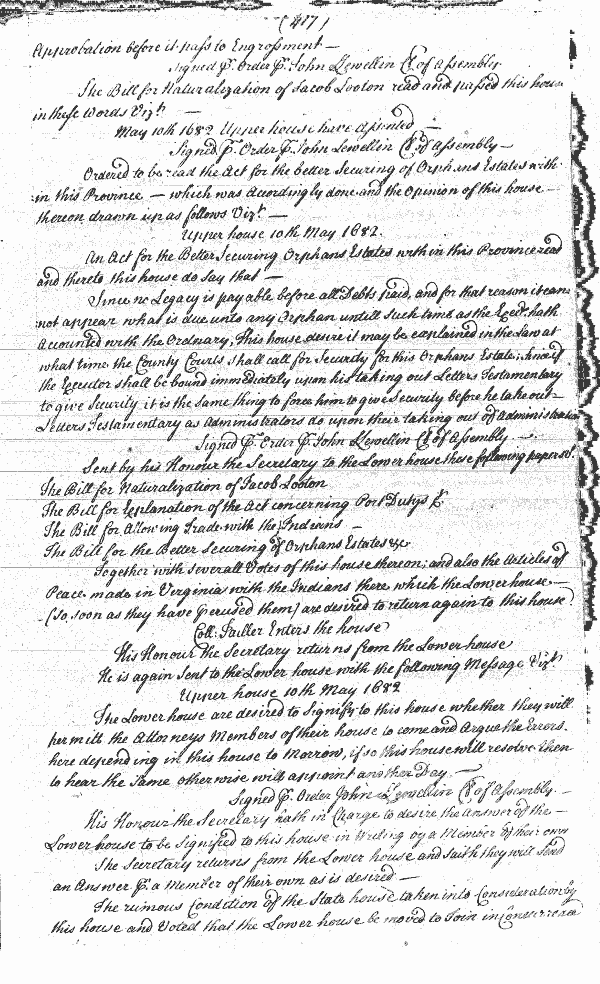 (417)
Approbation before it pass to Engrossment —
Signed P. Order P. John Llewellin Cl of Assembly
The Bill for Naturalization of Jacob Looton read and passed this house
in these words Vizt. —
May 10th 1682 Upper house have assented —
Signed P. Order P. John Llewellin Cl of Assembly —
Ordered to be read the Act for the better Securing of Orphans Estates with-
in this Province — which was accordingly done and the Opinion of this house —
thereon drawn up as follows Vizt. —
Upper house 10th May 1682.
An Act for the Better Securing Orphans Estates within this Province read
and thereto this house do say that —
Since no Legacy is payable before all Debts paid, and for that reason it can
not appear what is due unto any Orphan untill such time as the Execr. hath
Accounted with the Ordnary, This house desire it may be explained in the Law at
what time the County Courts shall call for Security for this Orphans Estate; since if
the Executor shall be bound immediately upon his taking out Letters Testamentary
to give Security it is the same thing to force him to give Security before he take out
Letters Testamentary as Administrators do upon their taking out of Administration
Signed P. Order P. John Llewellin Cl of Assembly —
Sent by his Honour the Secretary to the Lower house these following papers Vt.
The Bill for Naturalization of Jacob Looton
The Bill for Explanation of the Act concerning Port Dutys &c
The Bill for Allowing Trade with the Indians —
The Bill for the Better Securing of Orphans Estates &c
Together with severall Votes of this house thereon; and also the Articles of
Peace made in Virginia with the Indians there which the Lower house —
(so soon as they have perused them) are desired to return again to this house
Coll: Taller Enters the house
His Honour the Secretary returns from the Lower house
He is again sent to the Lower house with the following Message Vizt.
Upper house 10th May 1682
The Lower house are desired to signify to this house whether they will
permitt the Attorneys Members of their house to come and Argue the Errors
here depending in this house to Morrow, if so this house will resolve then
to hear the same otherwise will appoint another Day. —
Signed P. Order John Llewellin Cl of Assembly. —
His Honour the Secretary hath in Charge to desire the Answer of the —
Lower house to be signified to this house in Writing by a Member of their own
The Secretary returns from the Lower house and saith they will send
an Answer P. a Member of their own as is desired —
The ruinous Condition of the State house taken into Consideration by
this house and Voted that the Lower house be moved to Join in Concurrence